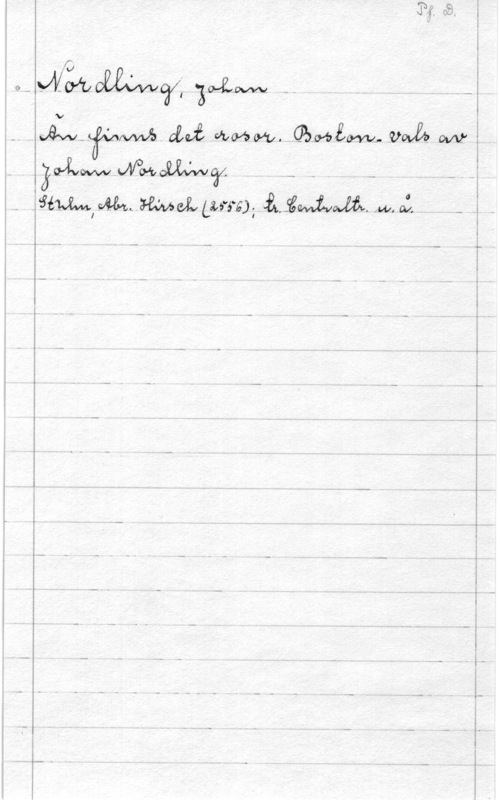 Pf. D.
Nordling, Johan
Än finns det rosor. Boston-vals av
Johan Nordling.
Sthlm, Abr. Hirsch (2556); tr. Centraltr. u. å.